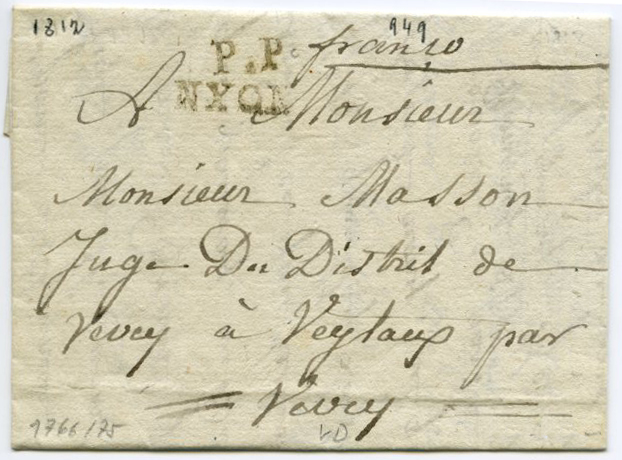 1812 949
P.P. franco
NYON
A Monsieur
Monsieur Masson
Juge Du Distrit de
Vevey à Veytaux par
Vevey
9766/75 LD